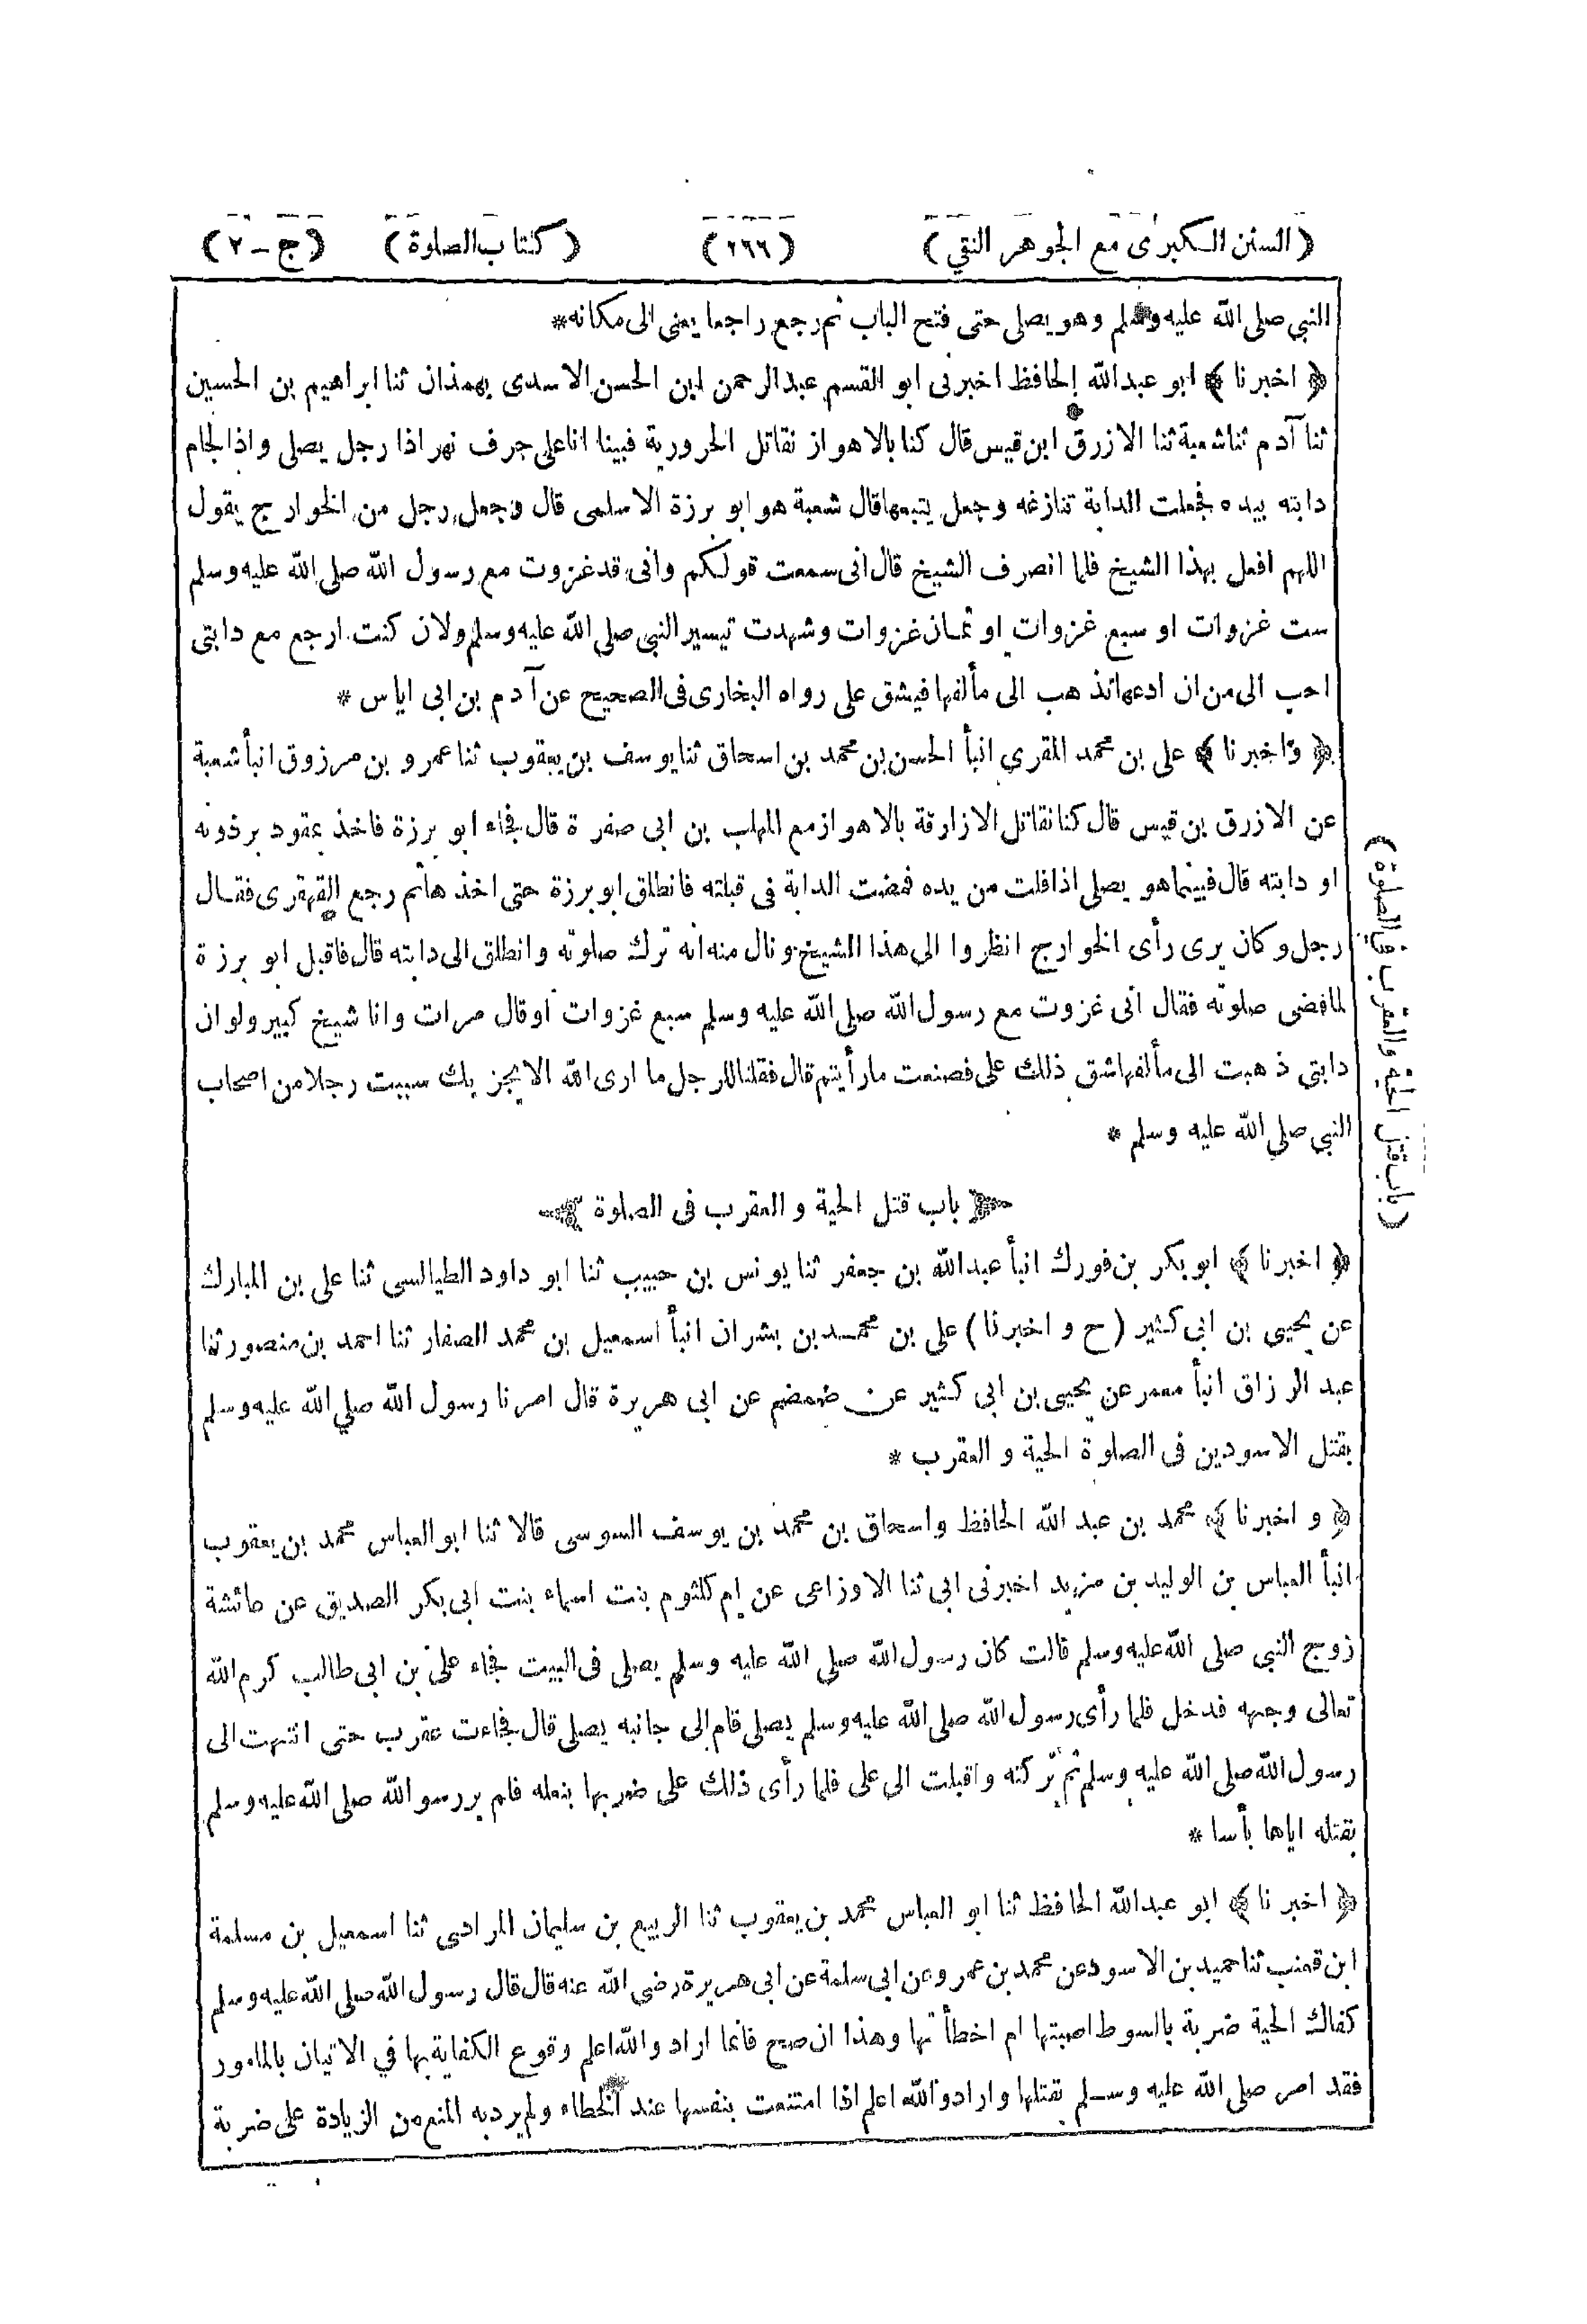 (السنن الكبرى مع الجوهر النقي) (٢٦٦) (كتاب الصلوة) (ج-٢)
النبي صلى الله عليه وسلم وهو يصلى حتى فتح الباب ثم رجع راجعا يعنى الى مكانه*
﴿ اخبرنا ﴾ ابو عبد الله الحافظ اخبرنى ابو القسم عبد الرحمن ابن الحسن الاسدى بهمذان ثنا ابراهيم بن الحسين
ثنا آدم ثنا شعبة ثنا الازرق ابن قيس قال كنا بالاهواز نقاتل الحرورية فبينا انا على جرف نهر اذا رجل يصلى واذا لجام
دابته بيده فجعلت الدابة تنازعه وجعل يتبعها قال شعبة هو ابو برزة الاسلمى قال وجعل رجل من الخوارج يقول
اللهم افعل بهذا الشيخ فلما انصرف الشيخ قال انى سمعت قولكم وانى قد غزوت مع رسول الله صلى الله عليه وسلم
ست غزوات او سبع غزوات او ثمان غزوات وشهدت تيسير النبي صلى الله عليه وسلم ولان كنت ارجع مع دابتى
احب الى من ان ادعها تذهب الى مألفها فيشق على رواه البخارى فى الصحيح عن آدم بن ابى اياس *
﴿ واخبرنا ﴾ على بن محمد المقري انبأ الحسن بن محمد بن اسحاق ثنا يوسف بن يعقوب ثنا عمرو بن مرزوق انبأ شعبة
عن الازرق بن قيس قال كنا نقاتل الازارقة بالاهواز مع المهلب بن ابى صفرة قال فجاء ابو برزة فاخذ بمقود برذونه
او دابته قال فبينما هو يصلى اذ افلت من يده فمضت الدابة فى قبلته فانطلق ابو برزة حتى اخذها ثم رجع القهقرى فقال
رجل وكان يرى رأى الخوارج انظروا الى هذا الشيخ ونال منه انه ترك صلوته وانطلق الى دابته قال فاقبل ابو برزة
لما قضى صلوته فقال انى غزوت مع رسول الله صلى الله عليه وسلم سبع غزوات اوقال مرات وانا شيخ كبير ولو ان
دابتى ذهبت الى مألفها شق ذلك على فصنعت ما رأيتم قال فقلنا للرجل ما ارى الله الا يجزيك سببت رجلا من اصحاب
النبي صلى الله عليه وسلم *
باب قتل الحية و العقرب فى الصلوة
﴿ اخبرنا ﴾ ابو بكر بن فورك انبأ عبد الله بن جعفر ثنا يونس بن حبيب ثنا ابو داود الطيالسى ثنا على بن المبارك
عن يحيى بن ابى كثير (ح و اخبرنا) على بن محمد بن بشران انبأ اسمعيل بن محمد الصفار ثنا احمد بن منصور ثنا
عبد الرزاق انبأ معمر عن يحيى بن ابى كثير عن ضمضم عن ابى هريرة قال امرنا رسول الله صلى الله عليه وسلم
بقتل الاسودين فى الصلوة الحية و العقرب *
﴿ و اخبرنا ﴾ محمد بن عبد الله الحافظ واسحاق بن محمد بن يوسف السوسى قالا ثنا ابو العباس محمد بن يعقوب
انبأ العباس بن الوليد بن مزيد اخبرنى ابى ثنا الاوزاعى عن ام كلثوم بنت اسماء بنت ابى بكر الصديق عن عائشة
زوج النبي صلى الله عليه وسلم قالت كان رسول الله صلى الله عليه وسلم يصلى فى البيت فجاء على بن ابى طالب كرم الله
تعالى وجهه فدخل فلما رأى رسول الله صلى الله عليه وسلم يصلى قام الى جانبه يصلى قال فجاءت عقرب حتى انتهت الى
رسول الله صلى الله عليه وسلم ثم تركته واقبلت الى على فلما رأى ذلك على ضربها بنعله فلم ير رسو الله صلى الله عليه وسلم
بقتله اياها بأسا *
﴿ اخبرنا ﴾ ابو عبد الله الحافظ ثنا ابو العباس محمد بن يعقوب ثنا الربيع بن سليمان المرادى ثنا اسمعيل بن مسلمة
ابن قعنب ثنا حميد بن الاسود عن محمد بن عمرو عن ابى سلمة عن ابى هريرة رضى الله عنه قال قال رسول الله صلى الله عليه وسلم
كفاك الحية ضربة بالسوط اصبتها ام اخطأتها وهذا ان صح فانما اراد والله اعلم وقوع الكفاية بها في الاتيان بالمامور
فقد امر صلى الله عليه وسلم بقتلها واراد والله اعلم اذا امتنعت بنفسها عند الخطاء ولم يرد به المنع من الزيادة على ضربة
(باب قتل الحية والعقرب فى الصلوة)